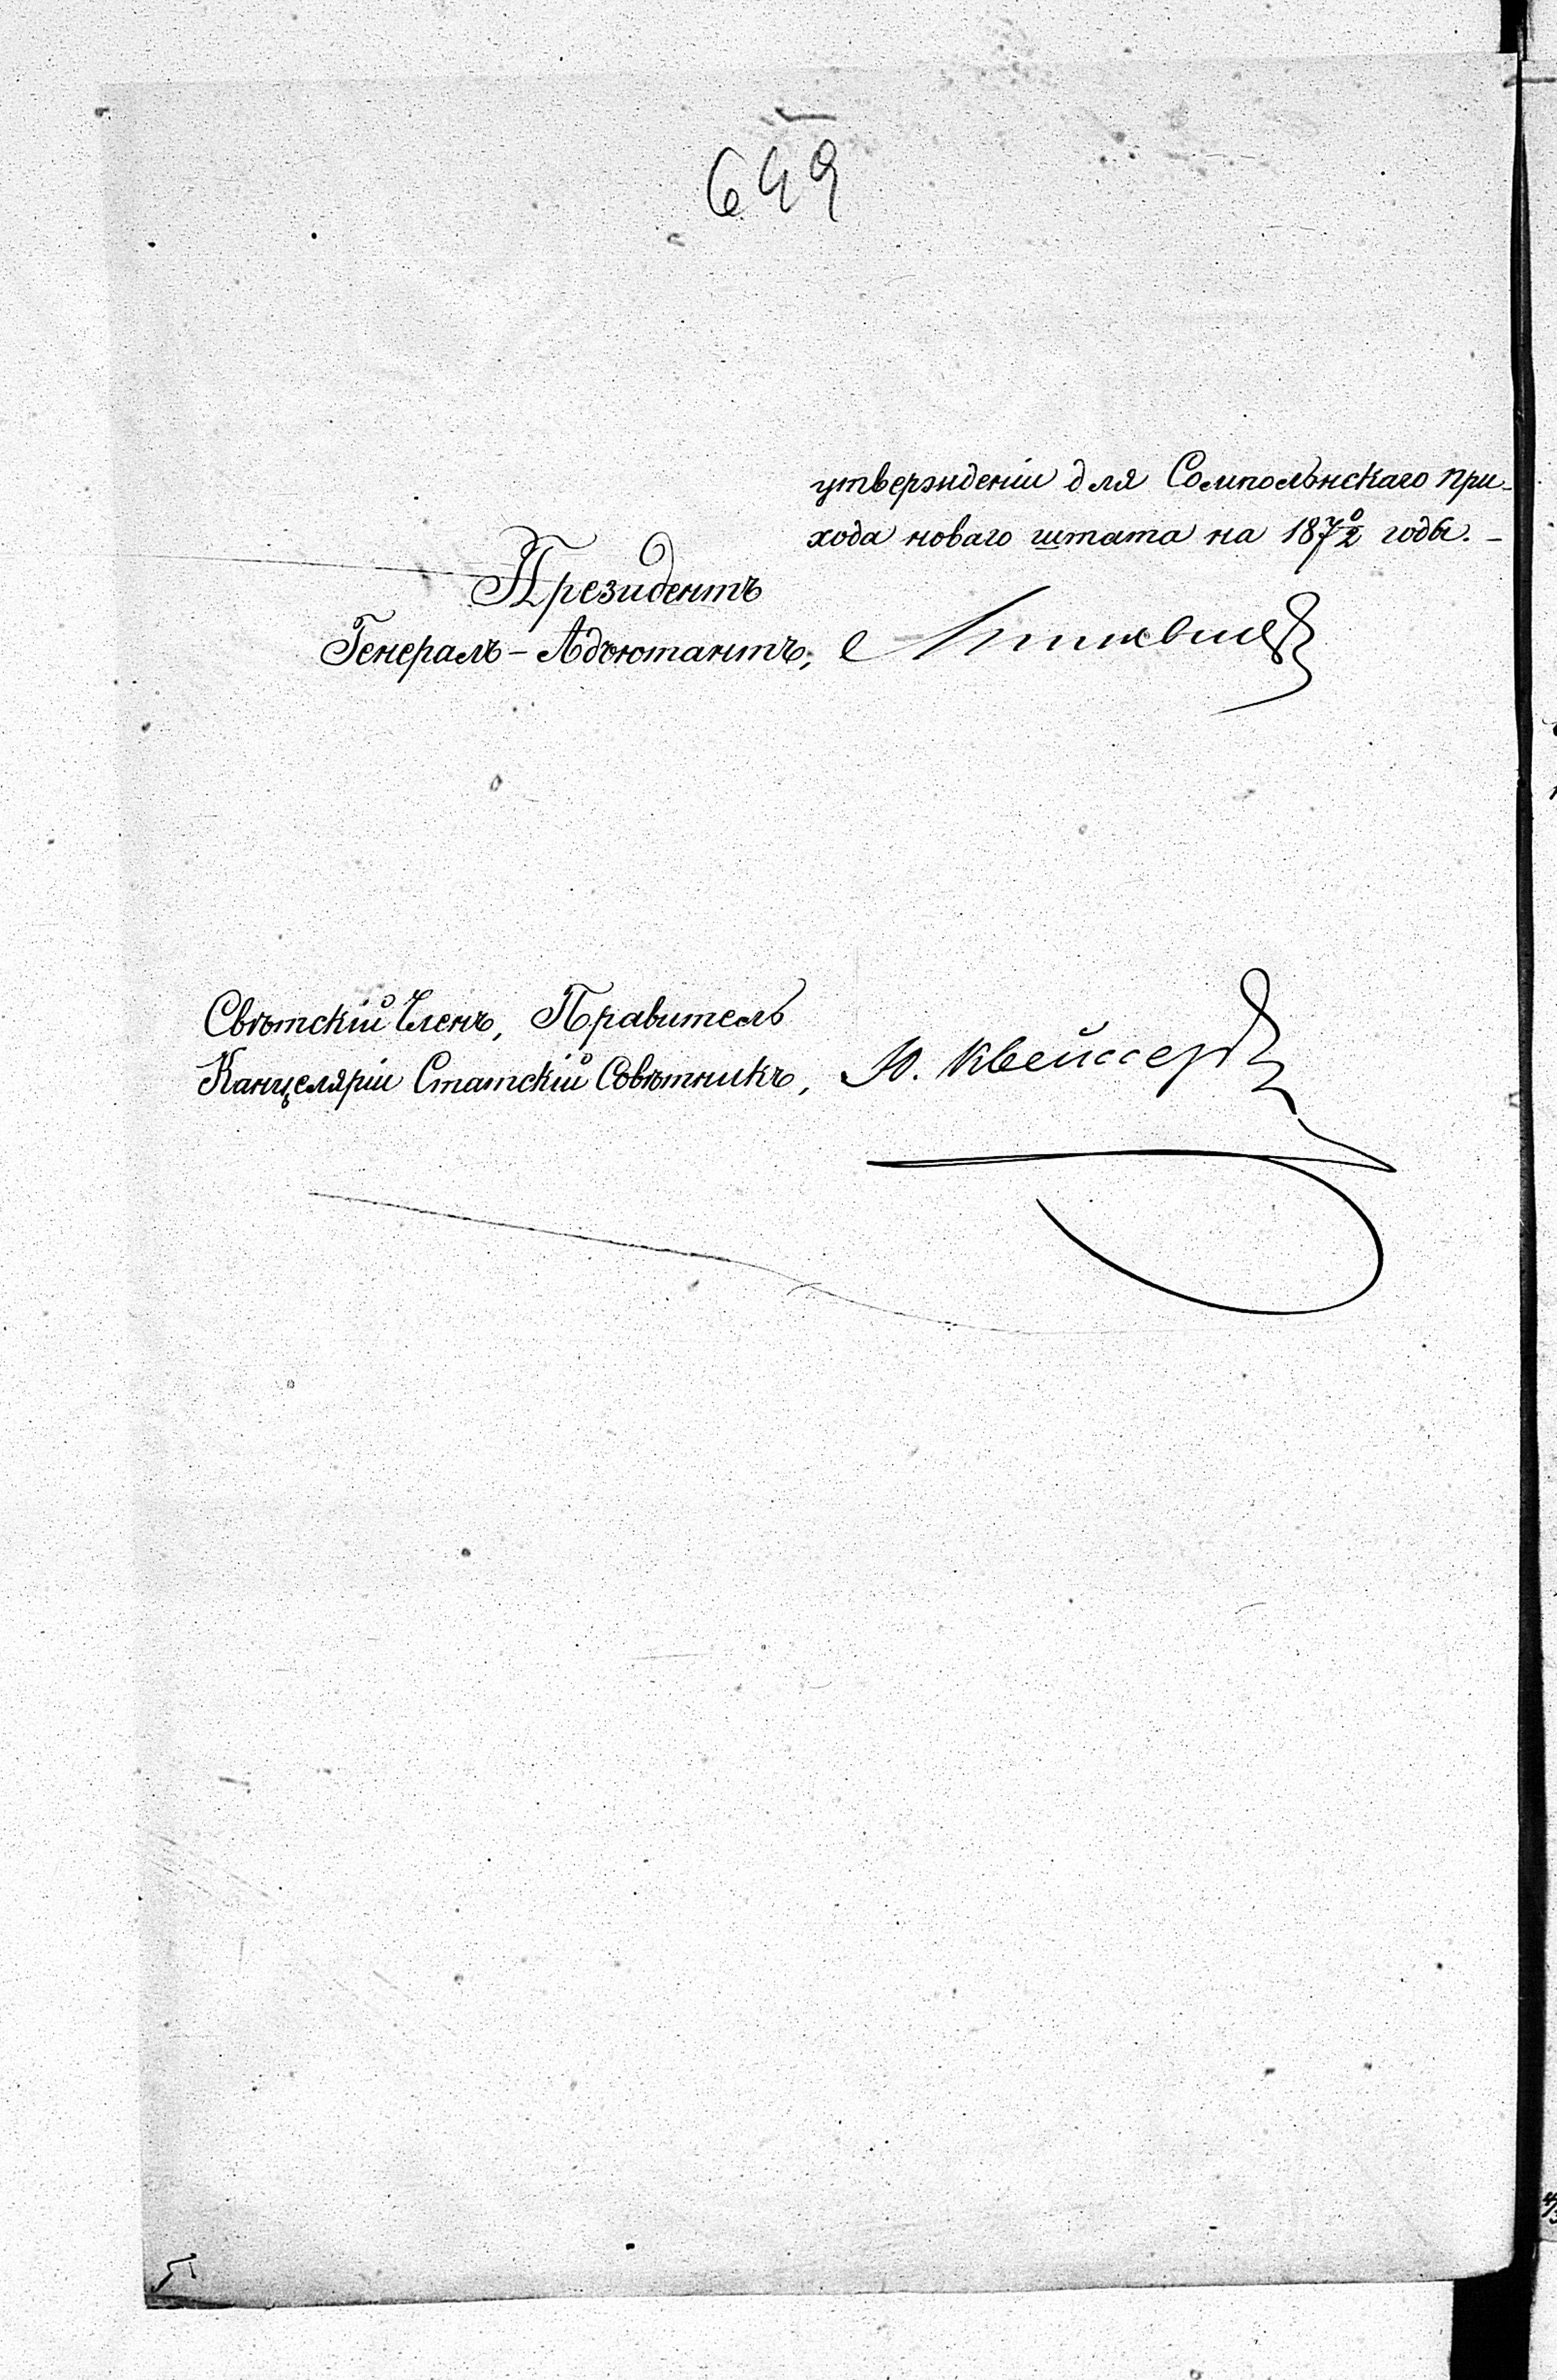 649
утвержденіи для Сомпольнскаго при-
хода новаго штата на 187 0/2 годы. -
Президентъ
Генералъ-Адъютантъ,
Свѣтскій Членъ, Правитель
Канцеляріи Статскій Совѣтникъ, Ю. Квейссеръ